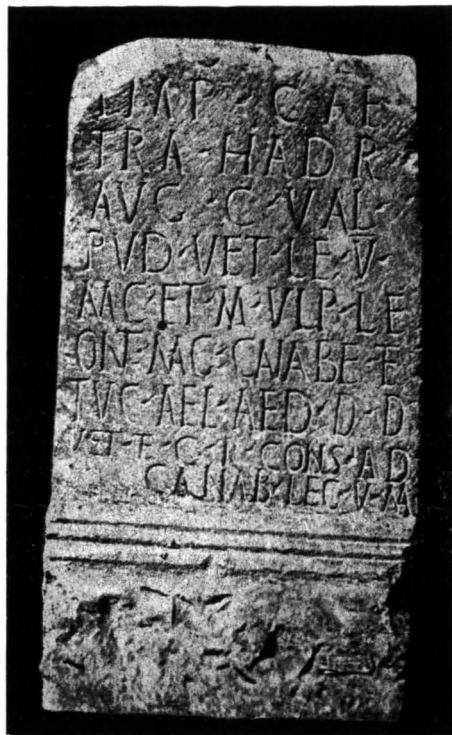 IMP · CAE
TRA · HADR
AVG · C · VAL ·
PVD · VET · LE · V ·
MC · ET · M · VLP · LE
ONT · MG · CANABE · E
TVC · AEL · AED · D · D
VET · T · C · I · CONS · AD
CANAB · LEG · V · M